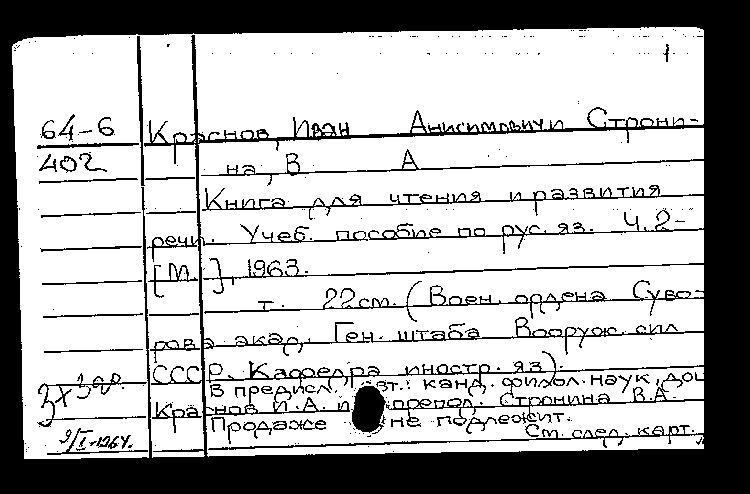 1
64-6 Краснов, Иван Анисимович и Строни-
402 на, В А
Книга для чтения и развития
речи. Учеб. пособие по рус. яз. Ч. 2-
[М.], 1963.
т. 22 см. (Воен. ордена Суво-
рова акад. Ген. штаба Вооруж. сил
СССР. Кафедра иностр. яз).
В предисл. авт.: канд. филол. наук, доц
Краснов И.А. и препод. Стронина В.А.
Продаже не подлежит.
См. след. карт.